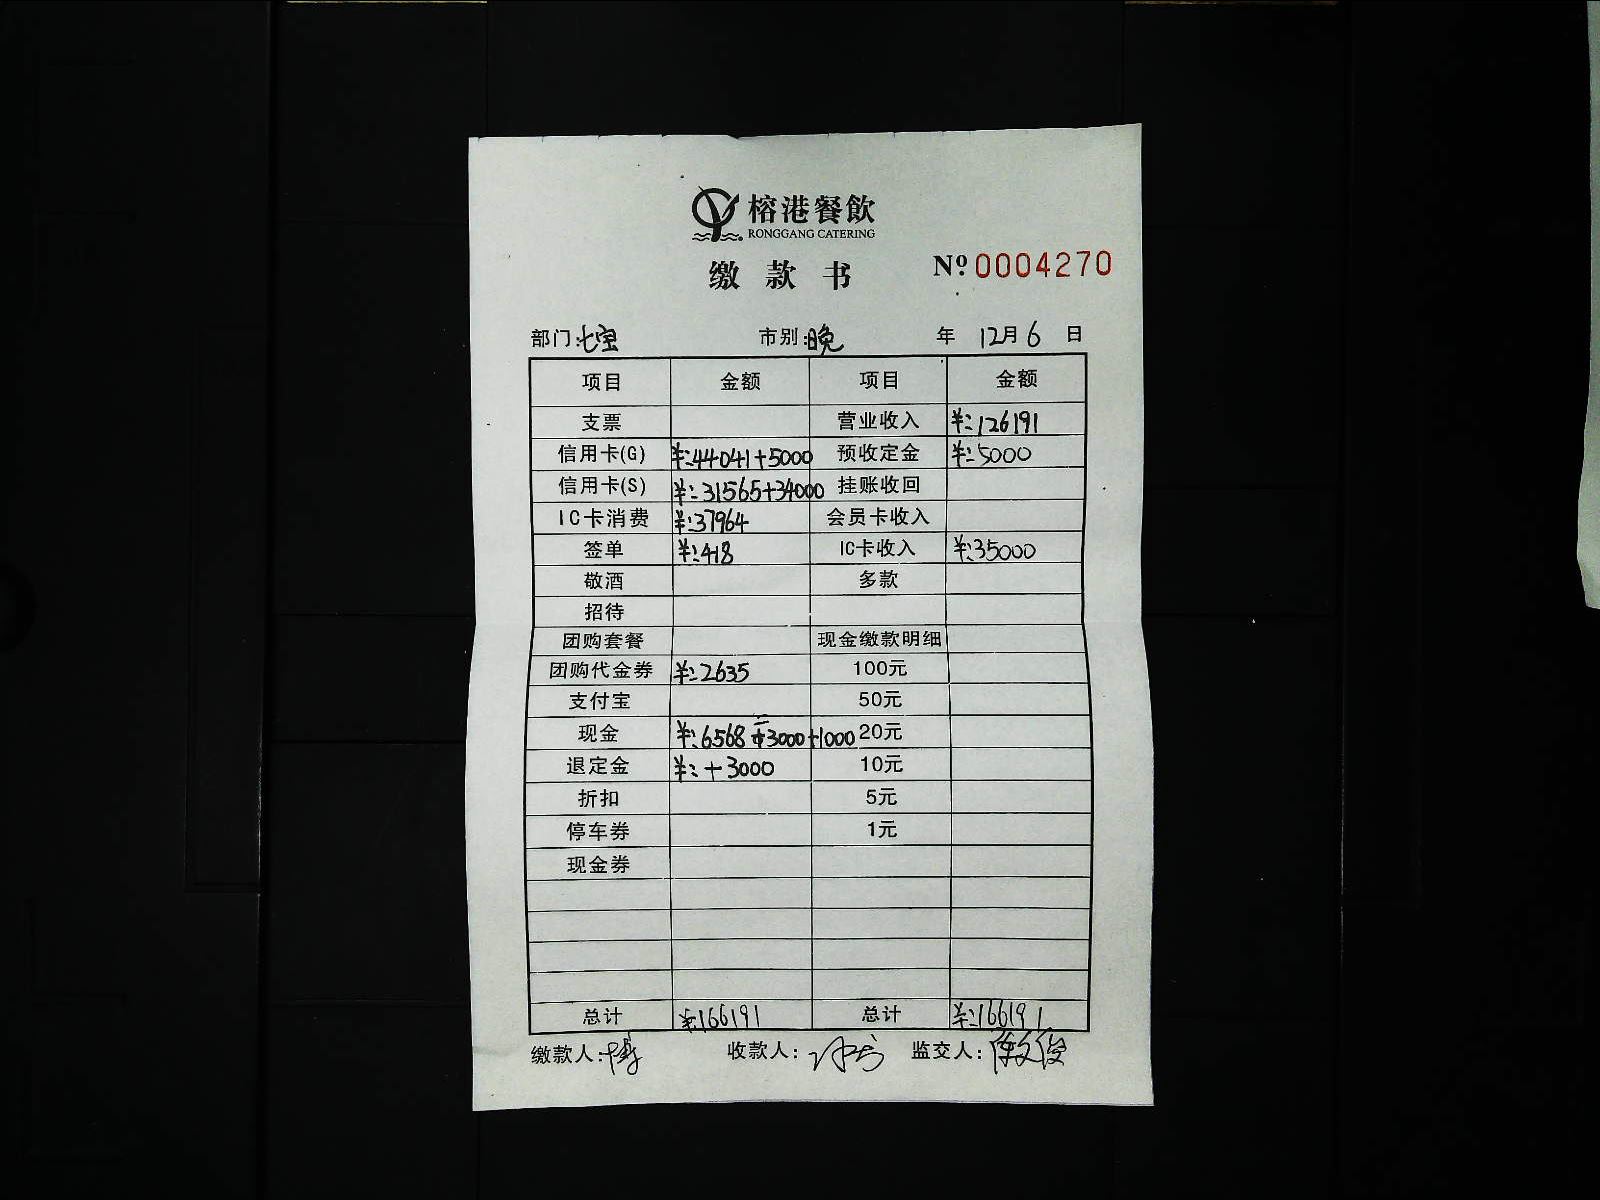 榕港餐飲
RONGGANG CATERING
缴款书
Nº 0004270
部门:七宝 市别:晚 年 12月6日
项目 金额 项目 金额
支票 营业收入 ¥:126191
信用卡(G) ¥:44041+5000 预收定金 ¥:5000
信用卡(S) ¥:31565+34000 挂账收回
IC卡消费 ¥:37964 会员卡收入
签单 ¥:418 IC卡收入 ¥:35000
敬酒 多款
招待
团购套餐 现金缴款明细
团购代金券 ¥:2635 100元
支付宝 50元
现金 ¥:6568 3000+1000 20元
退定金 ¥:+3000 10元
折扣 5元
停车券 1元
现金券
总计 ¥:166191 总计 ¥:166191
缴款人: 收款人: 监交人: